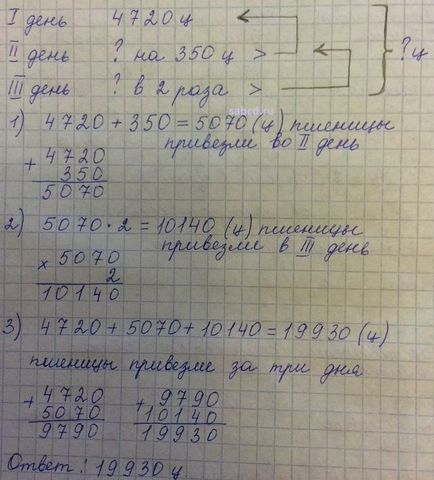 I день 4720 ц
II день ? на 350 ц > ? ц
III день ? в 2 раза >
sabcd.ru
1) 4720 + 350 = 5070 (ц) пшеницы
привезли во II день
+ 4720
350
5070
2) 5070 · 2 = 10140 (ц) пшеницы
привезли в III день
× 5070
2
10140
3) 4720 + 5070 + 10140 = 19930 (ц)
пшеницы привезли за три дня
+ 4720 + 9790
5070 10140
9790 19930
Ответ: 19930 ц